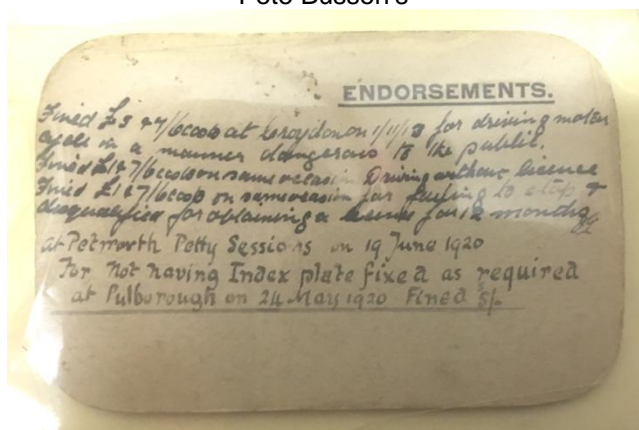 Pete Dusson's
ENDORSEMENTS.
Fined £5 & 7/6 costs at Croydon on 1/11/13 for driving motor
cycle in a manner dangerous to the public.
Fined £1 & 7/6 costs on same occasion Driving without licence
Fined £1 & 7/6 costs on same occasion for failing to stop &
disqualified for obtaining a licence for 12 months
at Petworth Petty Sessions on 19 June 1920
For Not having Index plate fixed as required
at Pulborough on 24 May 1920 Fined 5/-